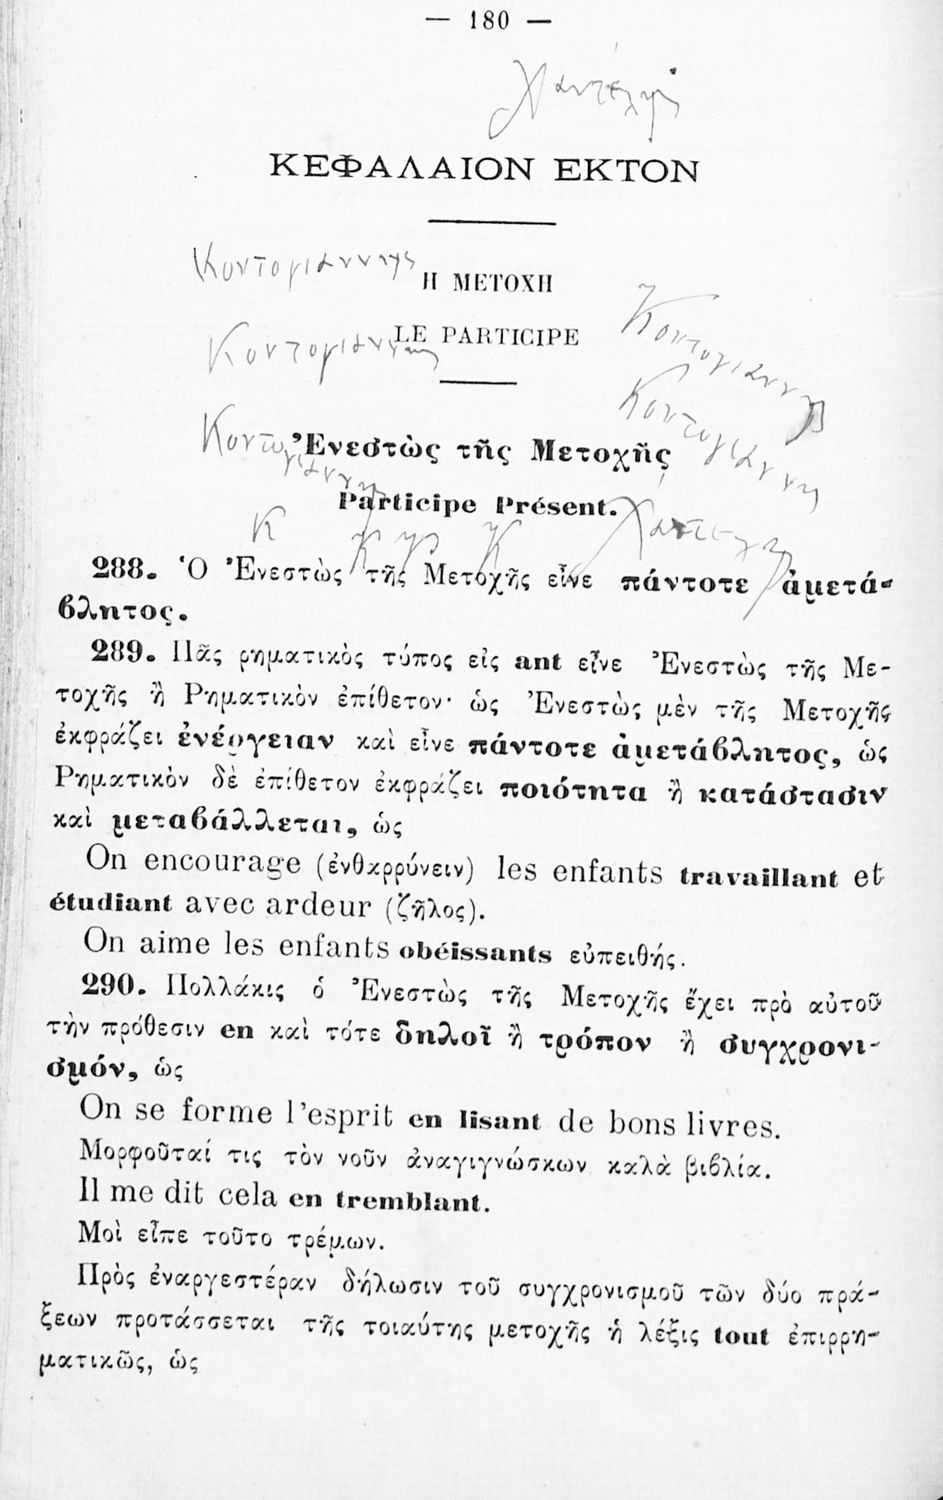 — 180 —
Χαντέλης
ΚΕΦΑΛΑΙΟΝ ΕΚΤΟΝ
Κοντογιαννης
Η ΜΕΤΟΧΗ
Κοντογιαννης
LE PARTICIPE
Κοντογιαννης
Κοντογιαννη
Κοντογιαννη
Ἐνεστὼς τῆς Μετοχῆς
Participe Présent.
Κ Κ Κ
288. Ὁ Ἐνεστὼς τῆς Μετοχῆς εἶνε πάντοτε ἀμετά-
βλητος.
289. Πᾶς ρηματικὸς τύπος εἰς ant εἶνε Ἐνεστὼς τῆς Με-
τοχῆς ἢ Ρηματικὸν ἐπίθετον· ὡς Ἐνεστὼς μὲν τῆς Μετοχῆς
ἐκφράζει ἐνέργειαν καὶ εἶνε πάντοτε ἀμετάβλητος, ὡς
Ρηματικὸν δὲ ἐπίθετον ἐκφράζει ποιότητα ἢ κατάστασιν
καὶ μεταβάλλεται, ὡς
On encourage (ἐνθαρρύνειν) les enfants travaillant et
étudiant avec ardeur (ζῆλος).
On aime les enfants obéissants εὐπειθής.
290. Πολλάκις ὁ Ἐνεστὼς τῆς Μετοχῆς ἔχει πρὸ αὐτοῦ
τὴν πρόθεσιν en καὶ τότε δηλοῖ ἢ τρόπον ἢ συγχρονι-
σμόν, ὡς
On se forme l'esprit en lisant de bons livres.
Μορφοῦταί τις τὸν νοῦν ἀναγιγνώσκων καλὰ βιβλία.
Il me dit cela en tremblant.
Μοὶ εἶπε τοῦτο τρέμων.
Πρὸς ἐναργεστέραν δήλωσιν τοῦ συγχρονισμοῦ τῶν δύο πρά-
ξεων προτάσσεται τῆς τοιαύτης μετοχῆς ἡ λέξις tout ἐπιρρη-
ματικῶς, ὡς